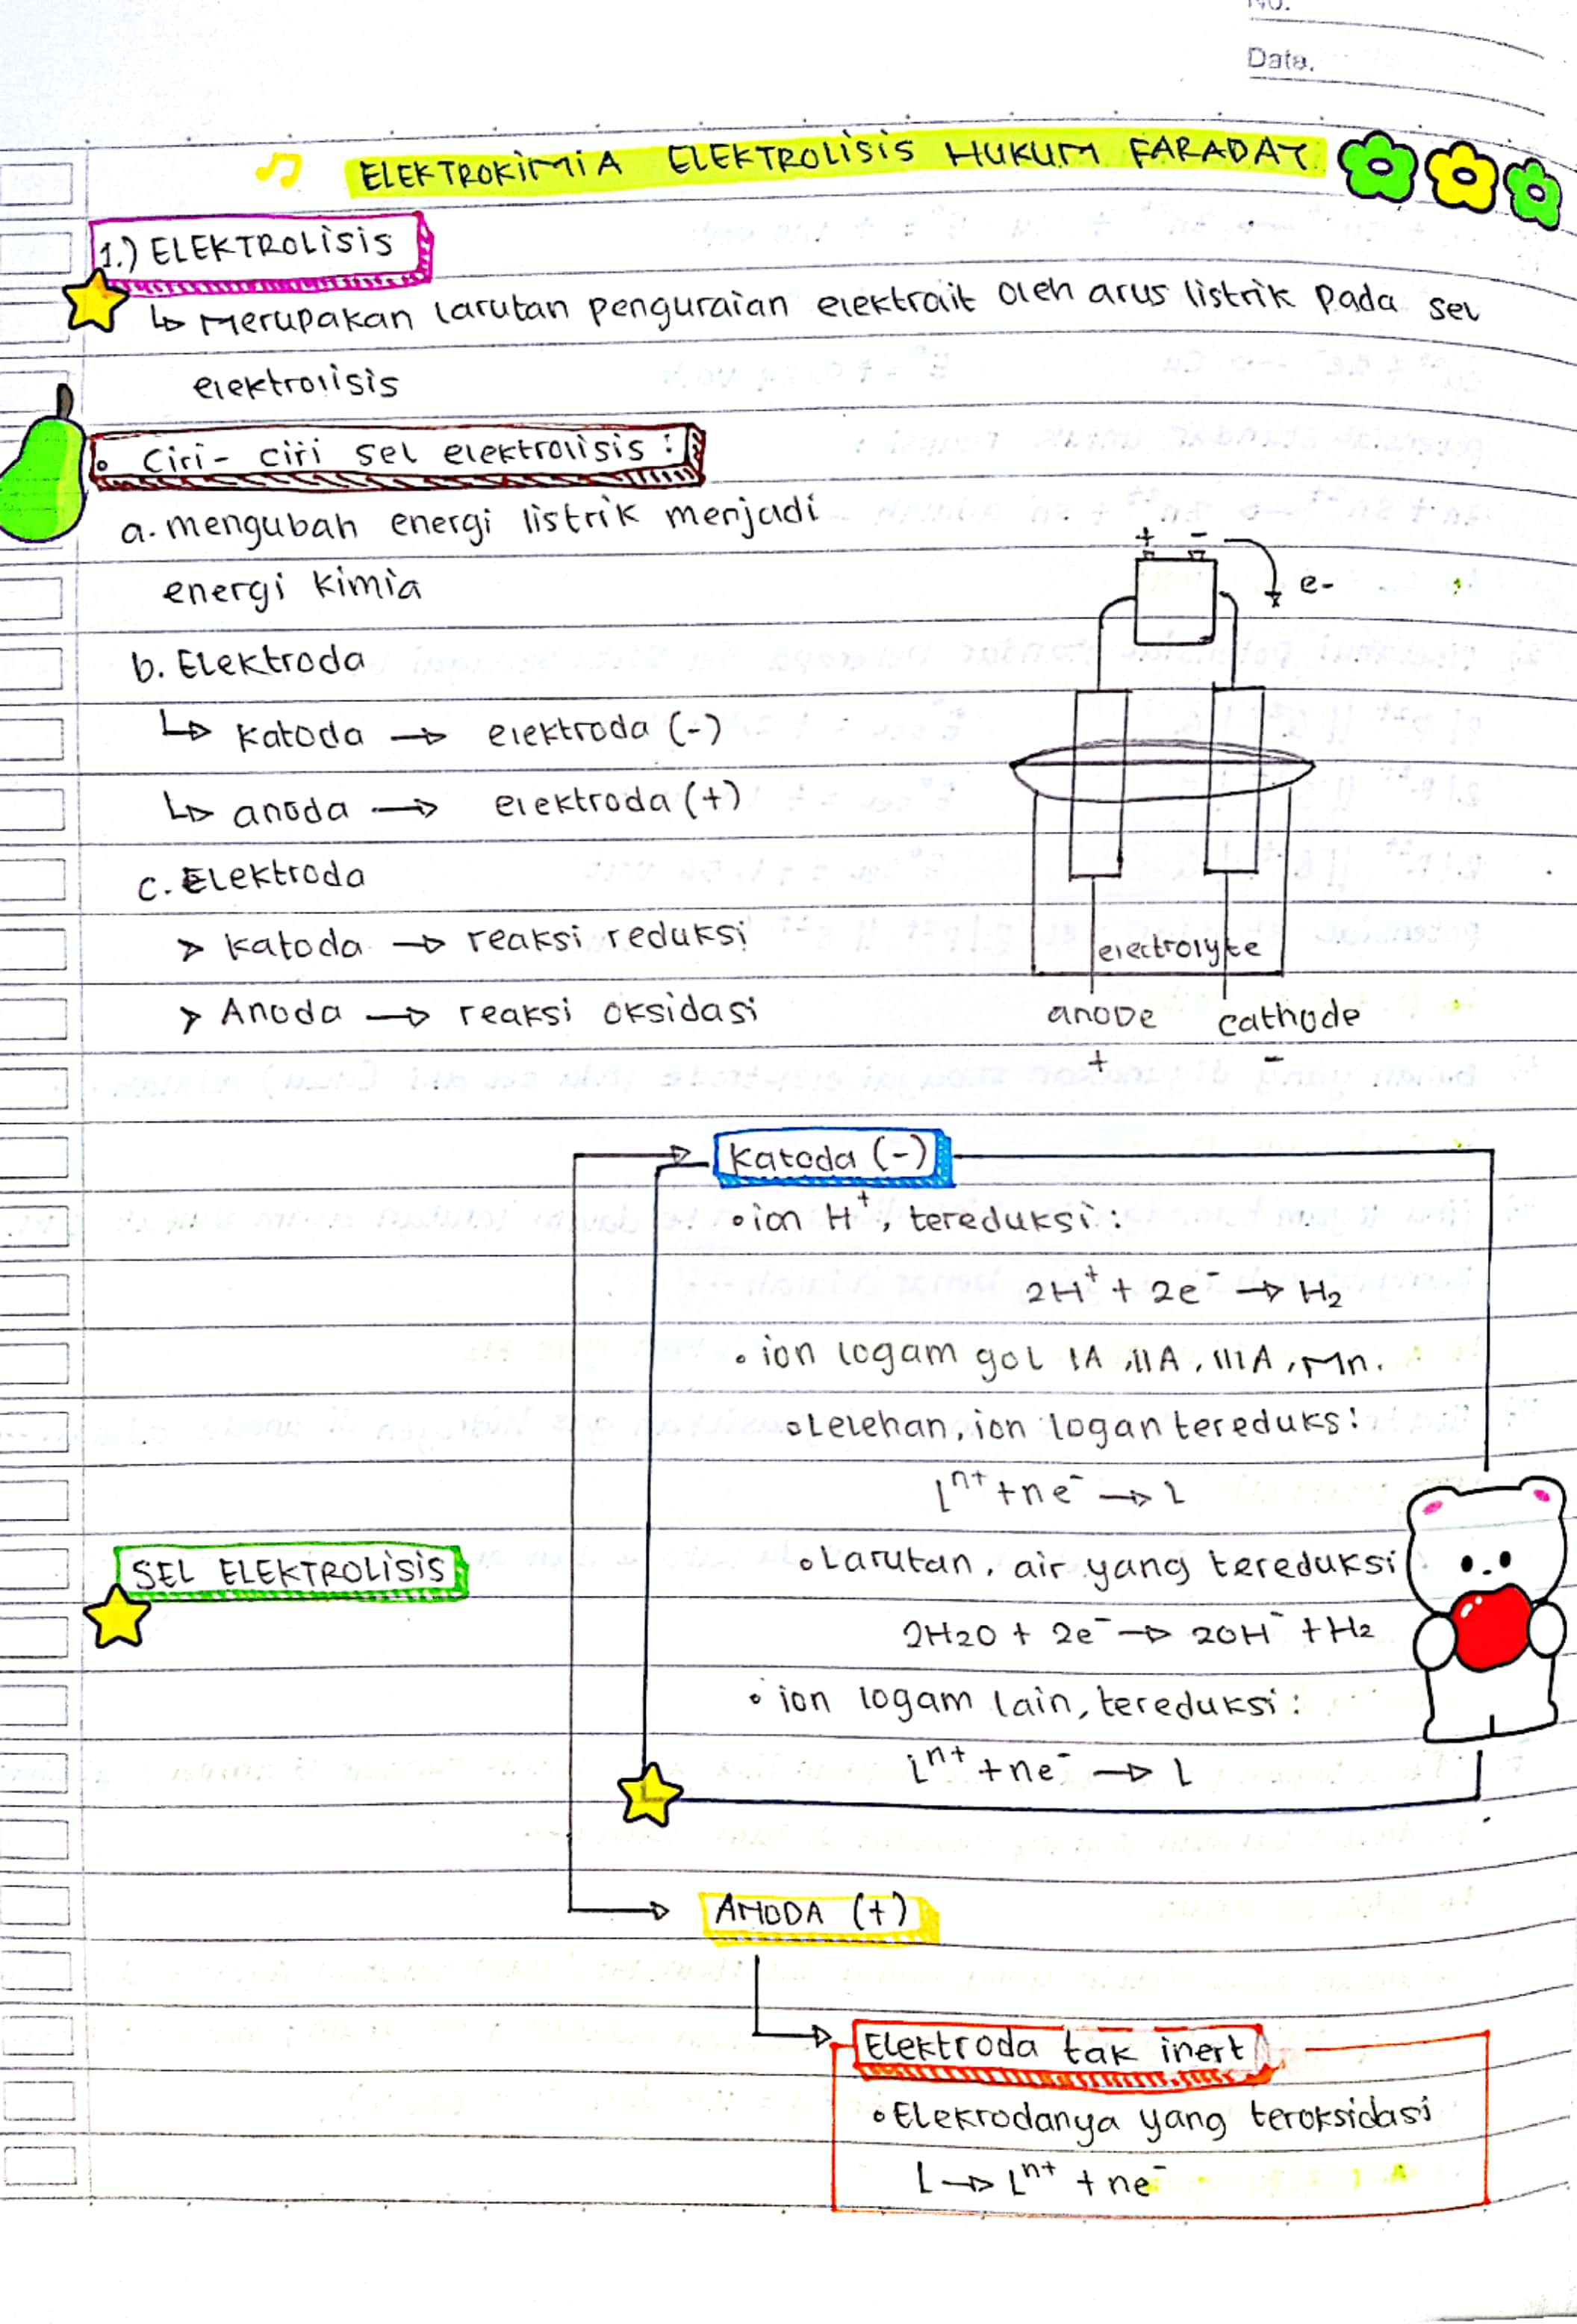 No.
Date.
ELEKTROKIMIA ELEKTROLISIS HUKUM FARADAY
1.) ELEKTROLISIS
↳ Merupakan larutan penguraian elektrait oleh arus listrik pada sel
elektrolisis
• Ciri - ciri sel elektrolisis :
a. mengubah energi listrik menjadi
energi kimia
b. Elektroda
↳ Katoda → elektroda (-)
↳ anoda → elektroda (+)
c. Elektroda
> Katoda → reaksi reduksi
> Anoda → reaksi oksidasi
+ -
e-
electrolyte
anode cathode
+ -
Katoda (-)
• ion H⁺, tereduksi :
2H⁺ + 2e⁻ → H₂
• ion logam gol IA, IIA, IIIA, Mn.
• Lelehan, ion logan tereduks :
Lⁿ⁺ + ne⁻ → L
• Larutan, air yang tereduksi
2H2O + 2e⁻ → 2OH⁻ + H2
• ion logam lain, tereduksi :
Lⁿ⁺ + ne⁻ → L
SEL ELEKTROLISIS
ANODA (+)
Elektroda tak inert
• Elekrodanya yang teroksidasi
L → Lⁿ⁺ + ne⁻